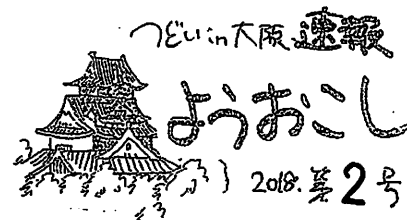 つどいin大阪速報
ようおこし
2018.第2号